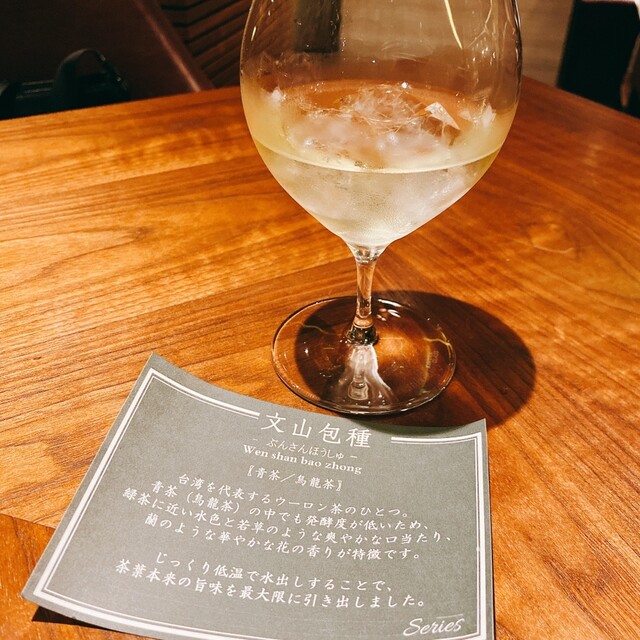 文山包種
- ぶんさんほうしゅ -
Wen shan bao zhong
〖青茶／烏龍茶〗
台湾を代表するウーロン茶のひとつ。
青茶（烏龍茶）の中でも発酵度が低いため、
緑茶に近い水色と若草のような爽やかな口当たり、
蘭のような華やかな花の香りが特徴です。
じっくり低温で水出しすることで、
茶葉本来の旨味を最大限に引き出しました。
Series